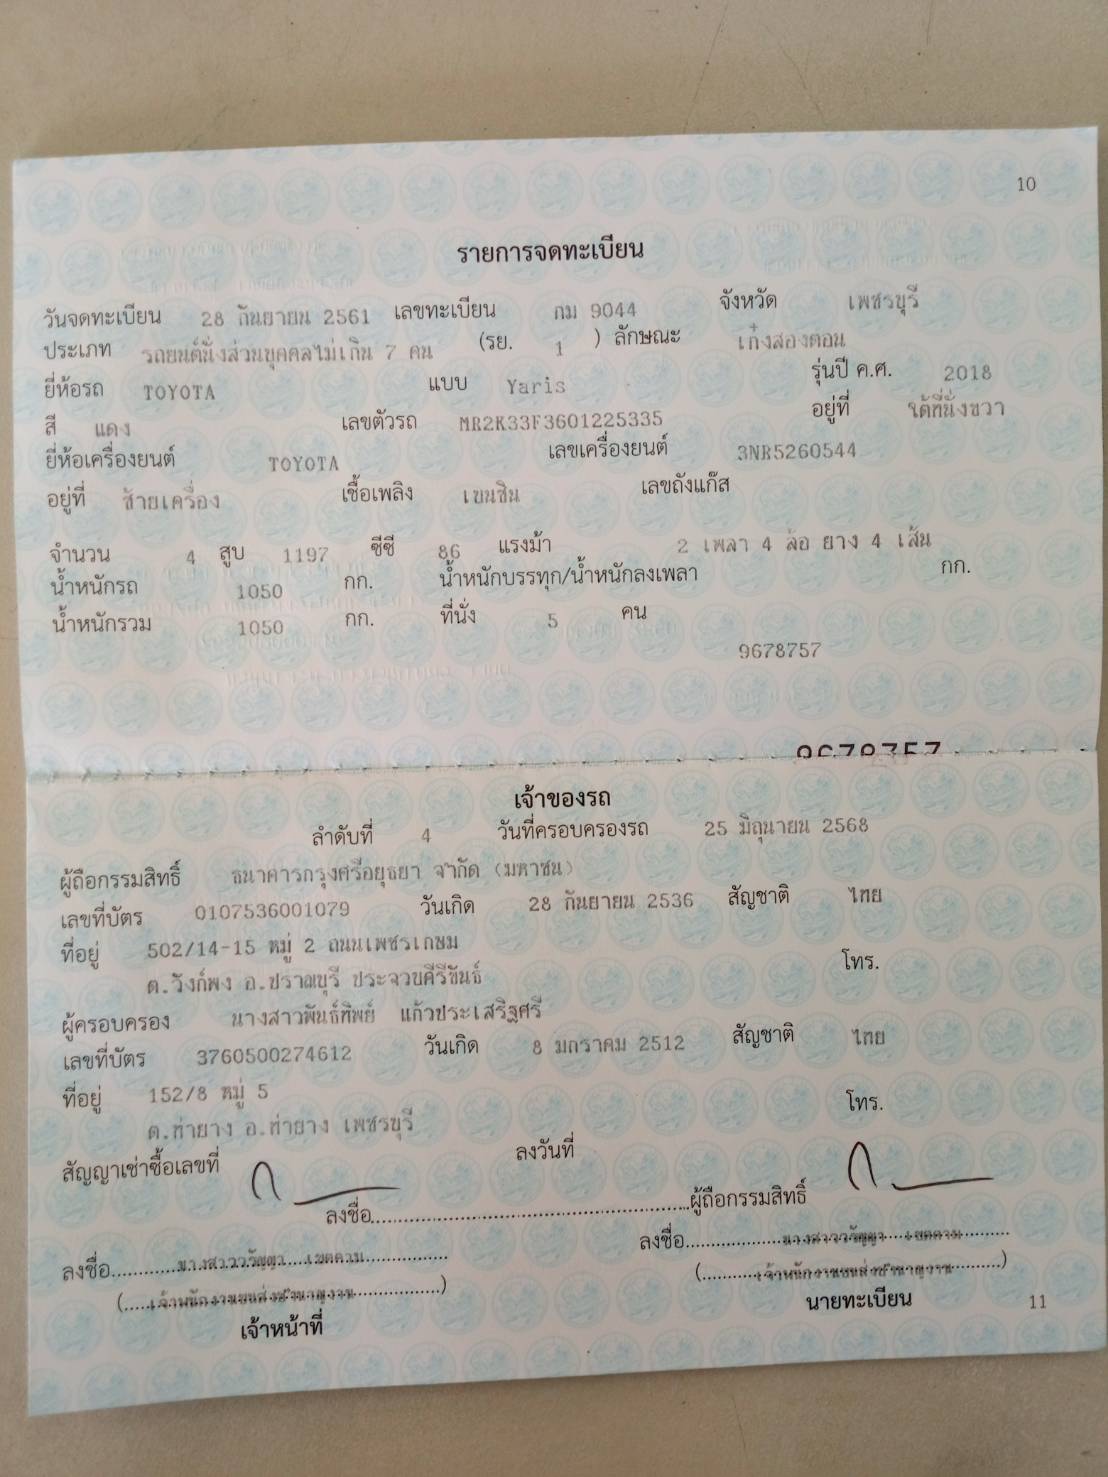 10
รายการจดทะเบียน
วันจดทะเบียน 28 กันยายน 2561 เลขทะเบียน กม 9044 จังหวัด เพชรบุรี
ประเภท รถยนต์นั่งส่วนบุคคลไม่เกิน 7 คน (รย. 1 ) ลักษณะ เก๋งสองตอน
ยี่ห้อรถ TOYOTA แบบ Yaris รุ่นปี ค.ศ. 2018
สี แดง เลขตัวรถ MR2K33F3601225335 อยู่ที่ ใต้ที่นั่งขวา
ยี่ห้อเครื่องยนต์ TOYOTA เลขเครื่องยนต์ 3NR5260544
อยู่ที่ ซ้ายเครื่อง เชื้อเพลิง เบนซิน เลขถังแก๊ส
จำนวน 4 สูบ 1197 ซีซี 86 แรงม้า 2 เพลา 4 ล้อ ยาง 4 เส้น
น้ำหนักรถ 1050 กก. น้ำหนักบรรทุก/น้ำหนักลงเพลา กก.
น้ำหนักรวม 1050 กก. ที่นั่ง 5 คน
9678757
9678757
เจ้าของรถ
ลำดับที่ 4 วันที่ครอบครองรถ 25 มิถุนายน 2568
ผู้ถือกรรมสิทธิ์ ธนาคารกรุงศรีอยุธยา จำกัด (มหาชน)
เลขที่บัตร 0107536001079 วันเกิด 28 กันยายน 2536 สัญชาติ ไทย
ที่อยู่ 502/14-15 หมู่ 2 ถนนเพชรเกษม
ต.วังก์พง อ.ปราณบุรี ประจวบคีรีขันธ์ โทร.
ผู้ครอบครอง นางสาวพันธ์ทิพย์ แก้วประเสริฐศรี
เลขที่บัตร 3760500274612 วันเกิด 8 มกราคม 2512 สัญชาติ ไทย
ที่อยู่ 152/8 หมู่ 5
ต.ท่ายาง อ.ท่ายาง เพชรบุรี โทร.
สัญญาเช่าซื้อเลขที่ ลงวันที่
ลงชื่อ..........ผู้ถือกรรมสิทธิ์
ลงชื่อ..........นางสาววรัญญา เขตคาม.......... ลงชื่อ..........นางสาววรัญญา เขตคาม..........
(.....เจ้าพนักงานขนส่งชำนาญงาน..........) (..........เจ้าพนักงานขนส่งชำนาญงาน..........)
เจ้าหน้าที่ นายทะเบียน 11